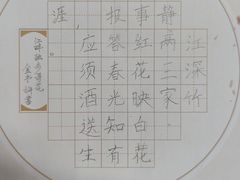 江深竹
静两三家
事红花映白花
报答春光知有
应须酒送生
涯
江畔独步寻花